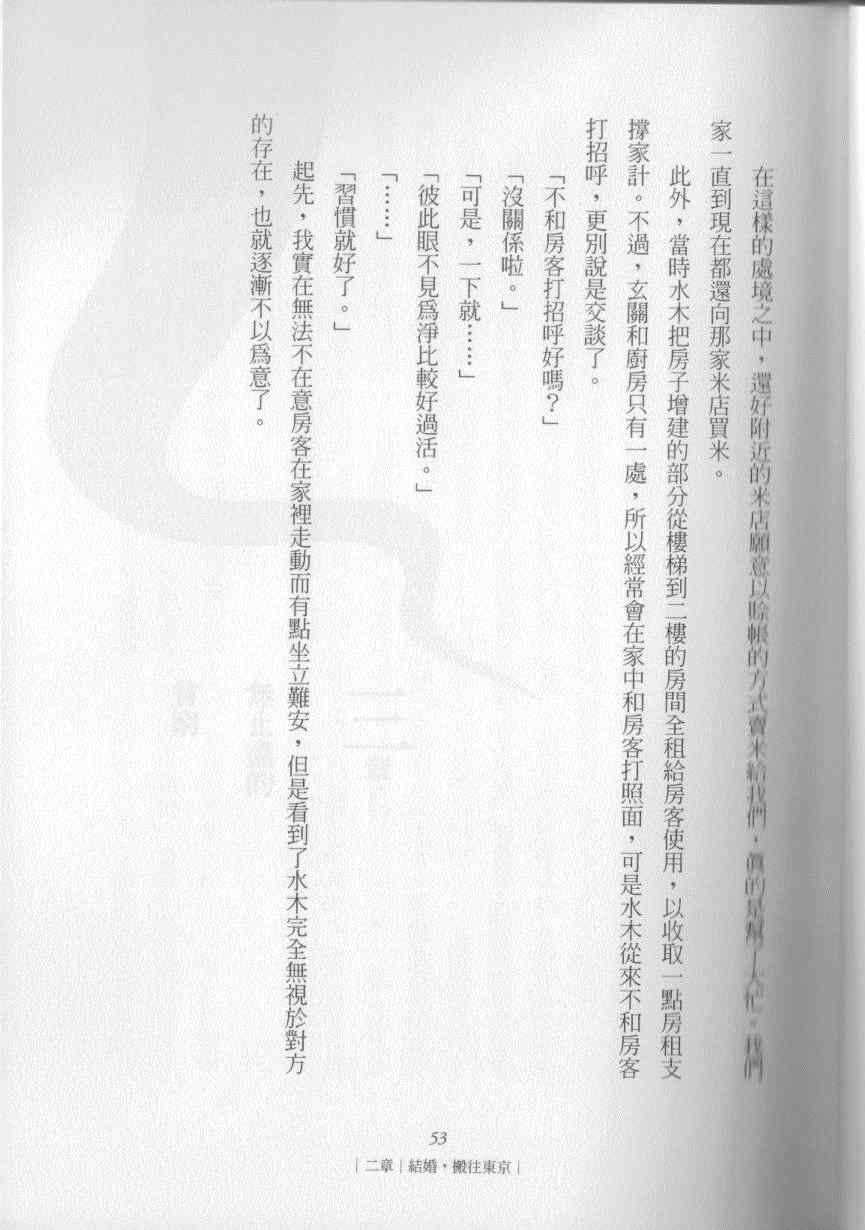 在這樣的處境之中，還好附近的米店願意以賒帳的方式賣米給我們，真的是幫了大忙。我們
家一直到現在都還向那家米店買米。
此外，當時水木把房子增建的部分從樓梯到二樓的房間全租給房客使用，以收取一點房租支
撐家計。不過，玄關和廚房只有一處，所以經常會在家中和房客打照面，可是水木從來不和房客
打招呼，更別說是交談了。
「不和房客打招呼好嗎？」
「沒關係啦。」
「可是，一下就……」
「彼此眼不見為淨比較好過活。」
「……」
「習慣就好了。」
起先，我實在無法不在意房客在家裡走動而有點坐立難安，但是看到了水木完全無視於對方
的存在，也就逐漸不以為意了。
53
｜二章｜結婚，搬往東京｜